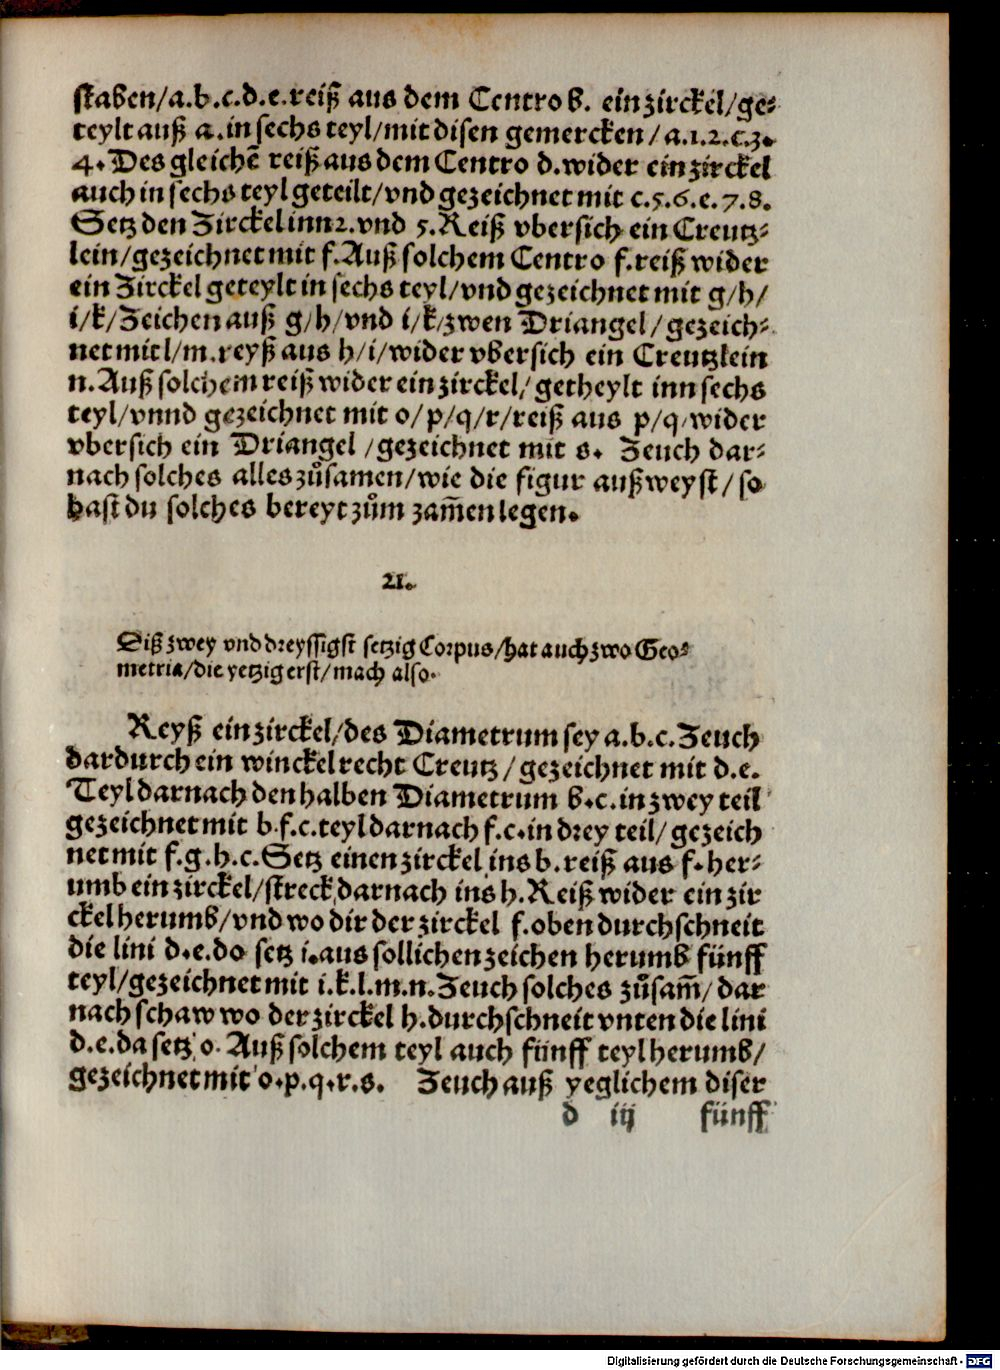 staben/a.b.c.d.e.reiß aus dem Centro b. ein zirckel/ge-
teylt auß a.in sechs teyl/mit disen gemercken/a.1.2.c.3.
4. Des gleichē reiß aus dem Centro d.wider ein zirckel
auch in sechs teyl geteilt/vnd gezeichnet mit c.5.6.e.7.8.
Setz den Zirckel inn 2.vnd 5.Reiß vbersich ein Creutz-
lein/gezeichnet mit f.Auß solchem Centro f.reiß wider
ein Zirckel geteylt in sechs teyl/vnd gezeichnet mit g/h/
i/k/Zeichen auß g/h/vnd i/k/zwen Driangel/gezeich-
net mit l/m.reyß aus h/i/wider vbersich ein Creutzlein
n.Auß solchem reiß wider ein zirckel/getheylt inn sechs
teyl/vnnd gezeichnet mit o/p/q/r/reiß aus p/q/wider
vbersich ein Driangel /gezeichnet mit s. Zeuch dar-
nach solches alles zůsamen/wie die figur außweyst/so
hast du solches bereyt zům zam̄en legen.
21.
Diß zwey vnd dreyssigst setzig Corpus/hat auch zwo Geo-
metria/die yetzig erst/mach also.
Reyß ein zirckel/des Diametrum sey a.b.c.Zeuch
dardurch ein winckelrecht Creutz/gezeichnet mit d.e.
Teyl darnach den halben Diametrum b.c.in zwey teil
gezeichnet mit b.f.c.teyl darnach f.c.in drey teil/gezeich
net mit f.g.h.c.Setz einen zirckel ins b.reiß aus f.her-
umb ein zirckel/streck darnach ins h.Reiß wider ein zir
ckel herumb/vnd wo dir der zirckel f.oben durchschneit
die lini d.e.do setz i.aus sollichen zeichen herumb fünff
teyl/gezeichnet mit i.k.l.m.n.Zeuch solches zůsam̄/dar
nach schaw wo der zirckel h.durchschneit vnten die lini
d.e.da setz o. Auß solchem teyl auch fünff teyl herumb/
gezeichnet mit o.p.q.r.s. Zeuch auß yeglichem diser
d iij fünff
Digitalisierung gefördert durch die Deutsche Forschungsgemeinschaft - DFG